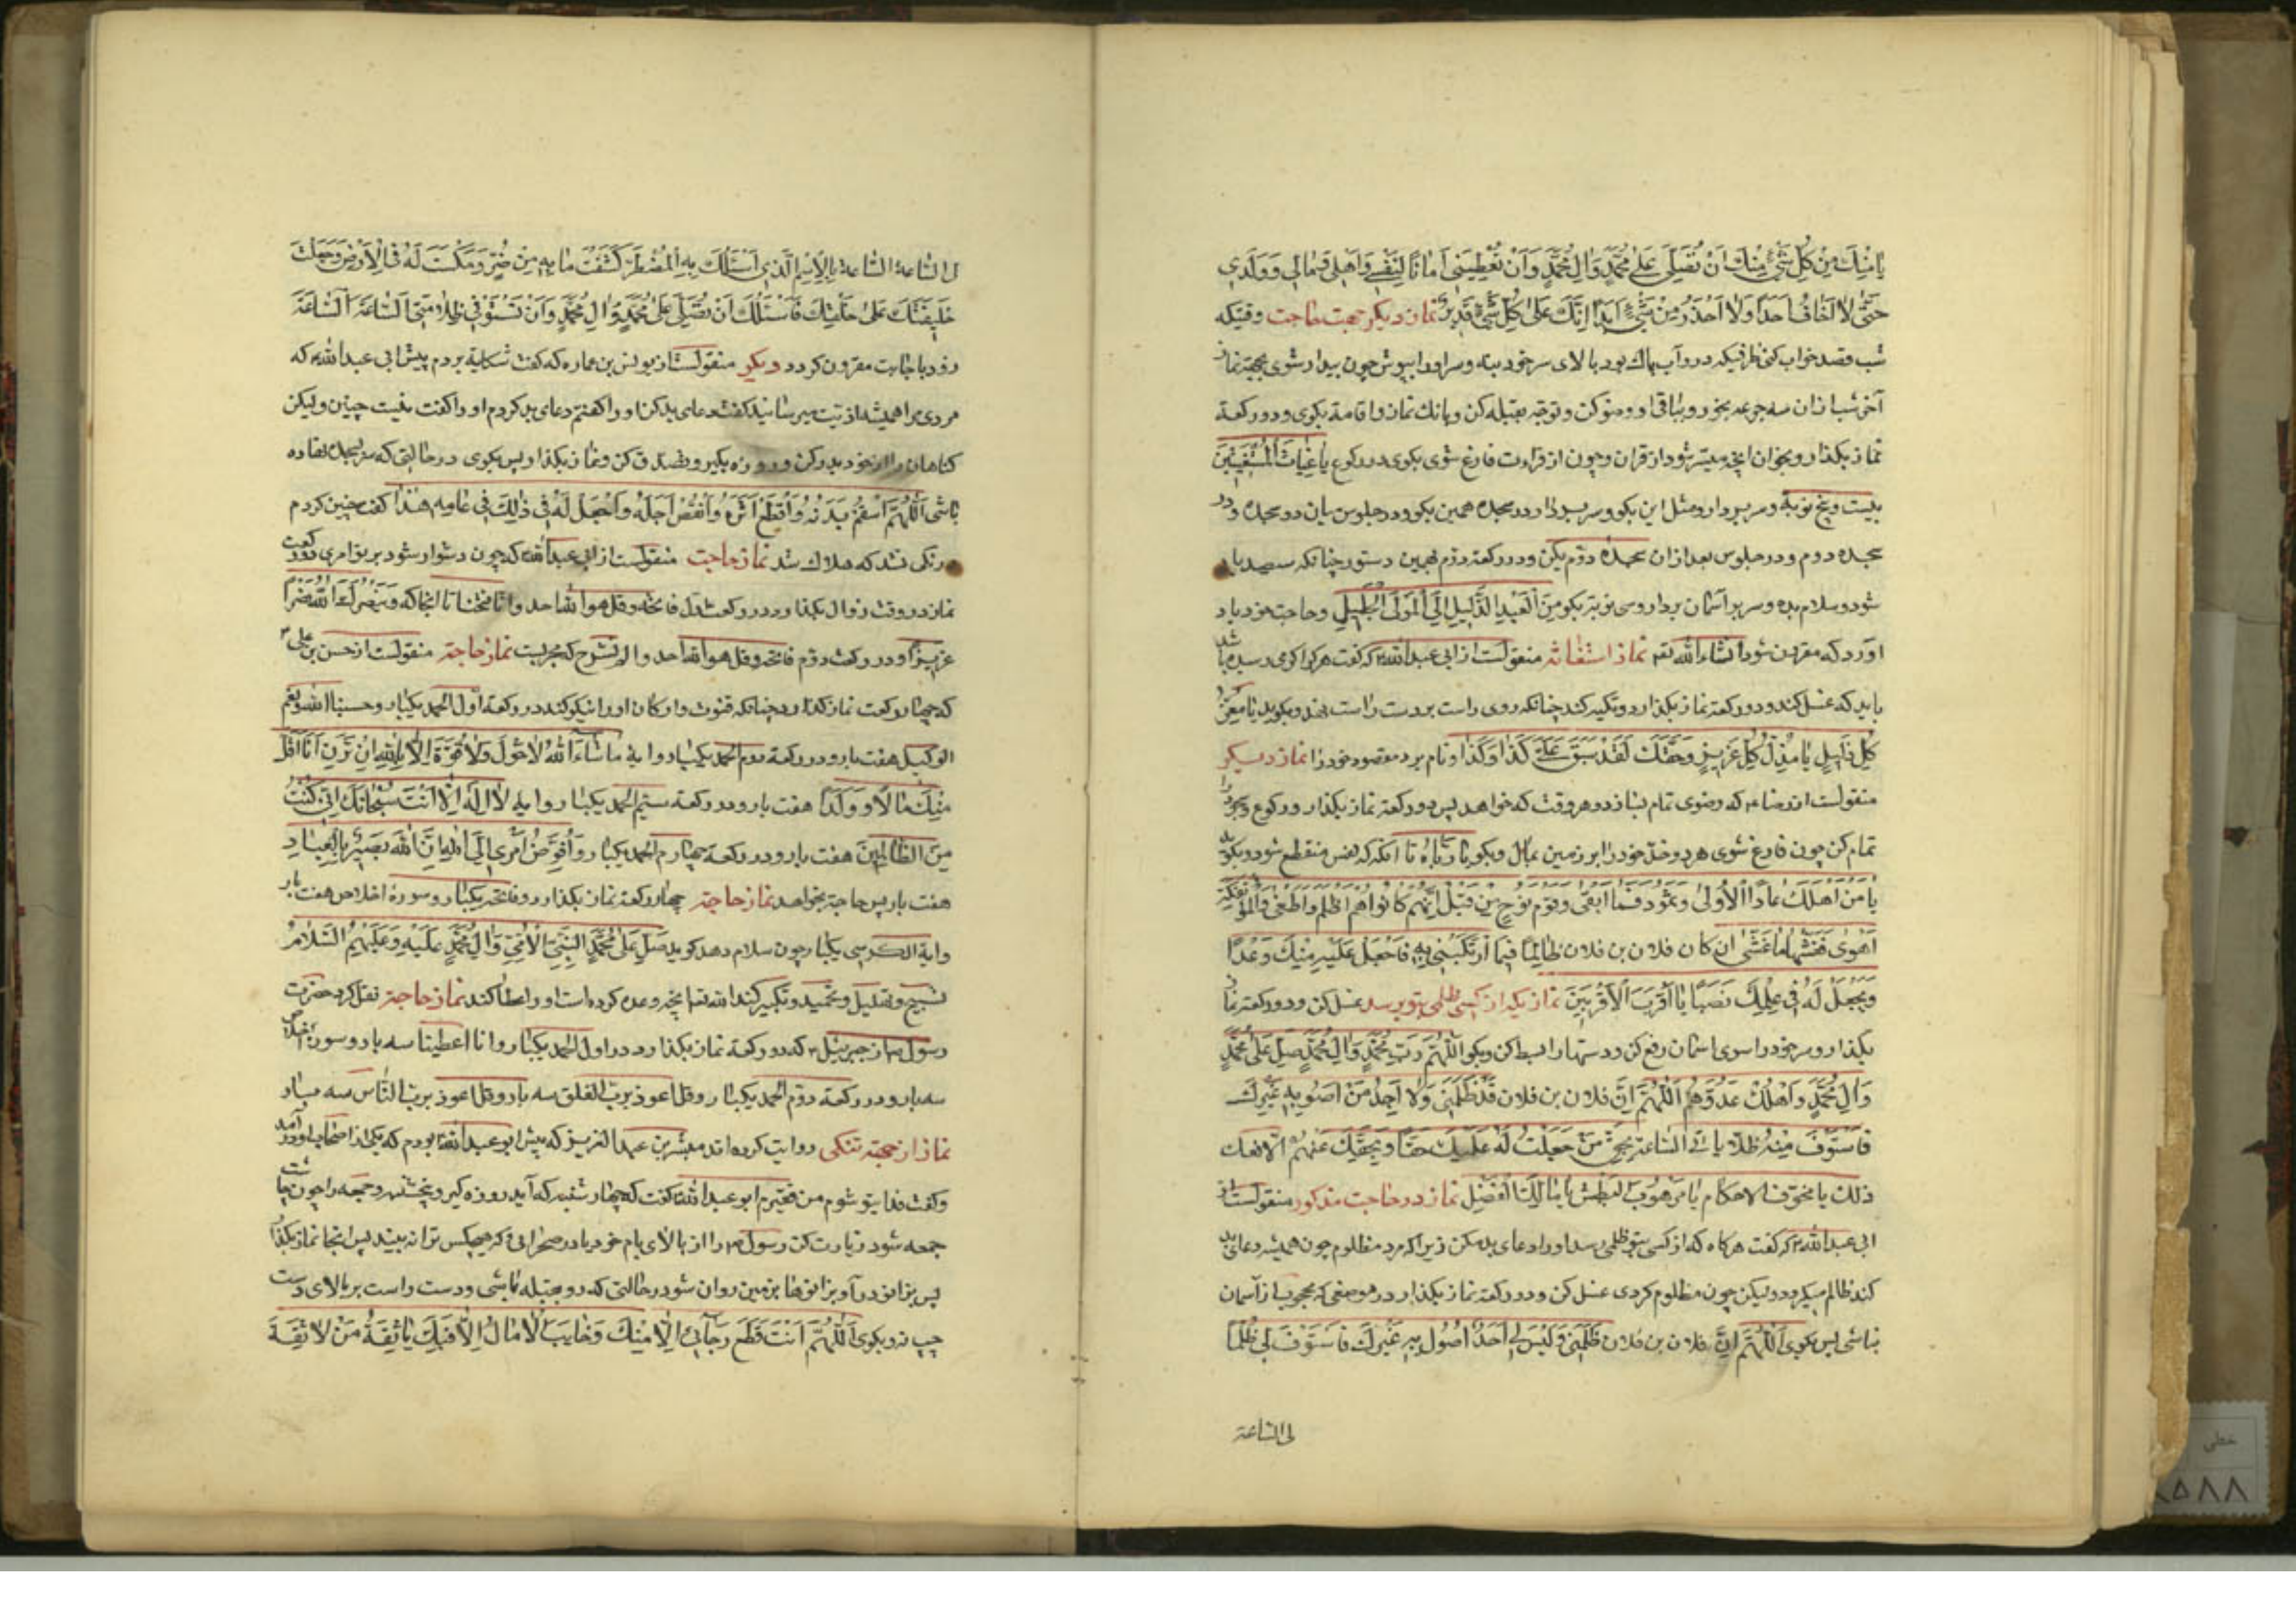 یا مِنْكَ مِنْ كُلِّ شَیْءٍ مِنْكَ اَنْ تُصَلِّیَ عَلی مُحَمَّدٍ وَ الِ مُحَمَّدٍ وَ اَنْ تُعْطِیَنی اَمانًا لِنَفْسی وَ اَهْلی وَ مالی وَ وَلَدی
حَتّی لا اَخافُ اَحَدًا وَلا اَحْذَرُ مِنْ شَیْءٍ اَبَدًا اِنَّكَ عَلی كُلِّ شَیْءٍ قَدیرٌ نماز دیكر جهت حاجت وقتیكه
شب قصد خواب كنی ظرفیكه درو آب پاك بود بالای سر خود بنه و سر اورا بپوش چون بیدار شوی بجهة نماز
آخر شب ازان سه جرعه بخور و بباقی او وضو كن و توجه بقبله كن و بانك نماز و اقامة بكوی و دو ركعة
نماز بكذار و بخوان انچه میسر شود از قران و چون از قراءت فارغ شوی بكوی در ركوع یا غِیاثَ الْمُسْتَغیثینَ
بیست و پنج نوبة و سر بردار و مثل این بكو و سر بردار و در سجده همین بكو و در جلوس میان دو سجده و در
سجده دوم و در جلوس بعد ازان سجدهٔ دوّم بكن و در ركعة دوّم بهمین دستور چنانكه سیصد بار
شود و سلام بده و سر بر آسمان بردار و سی نوبة بكو مِنَ الْعَبْدِ الذَّلیلِ اِلَی الْمَوْلَی الْجَلیلِ و حاجت خود یاد
آورد كه مقرون شود انشاء الله تع نماز استغاثه منقولست از ابی عبدالله كه كفت هر كرا كربی رسیده باشد
باید كه غسل كند و دو ركعة نماز بكذارد و تكیه كند چنانكه روی راست بر دست راست نهد و بكوید یا مُعِزَّ
كُلِّ ذَلیلٍ یا مُذِلَّ كُلِّ عَزیزٍ وَ حَقِّكَ لَقَدْ سَبَقَ عَلَیَّ كَذا وَ كَذا و نام برد مقصود خود را نماز دیكر
منقولست از رضا كه وضوی تمام بساز در هر وقت كه خواهد پس دو ركعة نماز بكذار و ركوع و سجود
تمام كن چون فارغ شوی هر دو خدّ خود را بر زمین بمال و بكو یا رَبّاهُ تا انكه كه نفس منقطع شود و بكو
یا مَنْ اَهْلَكَ عادًا الْاُولی وَ ثَمُودَ فَما اَبْقی وَ قَوْمَ نُوحٍ مِنْ قَبْلُ اِنَّهُمْ كانُوا هُمْ اَظْلَمَ وَ اَطْغی وَ الْمُؤْتَفِكَةَ
اَهْوی فَغَشّیها ما غَشّی ان كان فلان بن فلان ظالِمًا فیمَا ارْتَكَبَنی بِهِ فَاجْعَلْ عَلَیْهِ مِنْكَ وَعْدًا
وَ تَجْعَلْ لَهُ فی عِلْمِكَ نَصَبًا یا اَقْرَبَ الْاَقْرَبینَ نماز یكی از كسی ظلمی بتو برسد غسل كن و دو ركعة نماز
بكذار و سر خود را سوی اسمان رفع كن و دستها را بسط كن و بكو اَللّهُمَّ رَبَّ مُحَمَّدٍ وَ الِ مُحَمَّدٍ صَلِّ عَلی مُحَمَّدٍ
وَ الِ مُحَمَّدٍ وَ اَهْلِكْ عَدُوَّهُمْ اَللّهُمَّ اِنَّ فلان بن فلان قَدْ ظَلَمَنی وَلا اَجِدُ مَنْ اَصُولُ بِهِ غَیْرَكَ
فَاسْتَوْفِ مِنْهُ ظُلامَتِی السّاعَةَ بِحَقِّ مَنْ جَعَلْتَ لَهُ عَلَیْكَ حَقًّا وَ بِحَقِّكَ عَلَیْهِمْ اِلّا فَعَلْتَ
ذلك یا مَخُوفَ الاحكام یا مَرْهُوبَ الْبَطْشِ یا مالِكَ الْفَضْلِ نماز در حاجت مذكور منقولست از
ابی عبدالله كه كفت هر كاه كه از كسی بتو ظلمی رسد او را دعای بد مكن زیرا كه مرد مظلوم چون همیشه دعای بد
كند ظالم میكردد و لیكن چون مظلوم كردی غسل كن و دو ركعة نماز بكذار در موضعی كه محجوب از آسمان
نباشی پس بكوی اَللّهُمَّ اِنَّ فلان بن فلان ظَلَمَنی وَ لَیْسَ لی اَحَدٌ اَصُولُ بِهِ غَیْرَكَ فَاسْتَوْفِ لی ظُلامَتی
لی الساعة
ل الساعة الساعة بِالْاِسْمِ الَّذی اَسْئَلُكَ بِهِ الْمُضْطَرُّ كَشَفْتَ ما بِهِ مِنْ ضُرٍّ وَ مَكَّنْتَ لَهُ فِی الْاَرْضِ وَ جَعَلْتَ
خَلیفَتَكَ عَلی خَلْقِكَ فَاَسْئَلُكَ اَنْ تُصَلِّیَ عَلی مُحَمَّدٍ وَ الِ مُحَمَّدٍ وَ اَنْ تَسْتَوْفِیَ ظُلامَتی اَلسّاعَةَ اَلسّاعَةَ
زود باجابت مقرون كردد دیكر منقولست از یونس بن عماره كه كفت شكایة بردم پیش ابی عبدالله كه
مردی مرا همیشه اذیت میرسانید كفت دعای بد كن او را كفتم دعای بد كردم او را كفت نیست چنین ولیكن
كناهان را از خود بدر كن و روزه بكیر و تصدق كن و نماز بكذار و پس بكوی در حالتی كه سر بسجده نهاده
باشی اَللّهُمَّ اَسْقِمْ بَدَنَهُ وَ اقْطَعْ اَثَرَهُ وَ انْقُصْ اَجَلَهُ وَ اجْعَلْ لَهُ فی ذلِكَ فی عامِهِ هذا كفت چنین كردم
درنكی نشد كه هلاك شد نماز حاجت منقولست از ابی عبدالله كه چون دشوار شود بر تو امری دو ركعت
نماز در وقت زوال بكذار و در ركعت اول فاتحه و قل هو الله احد و انا فتحنا تا انجا كه وَ یَنْصُرَكَ اللّهُ نَصْرًا
عَزیزًا و در ركعت دوّم فاتحه و قل هو الله احد و الم نشرح كه مجربست نماز حاجة منقولست از حسن بن علی
كه چهار ركعت نماز كذارد چنانكه قنوت و اركان او را نیكو كند در ركعة اوّل الحمد یكبار و حسبنا الله و نعم
الوكیل هفت بار و در ركعة دوم الحمد یكبار و ایة ما شاءَ اللّهُ لا حَوْلَ وَلا قُوَّةَ اِلّا بِاللّهِ اِنْ تَرَنِ اَنَا اَقَلَّ
مِنْكَ مالًا وَ وَلَدًا هفت بار و در ركعة سیّم الحمد یكبار و ایه لا اِلهَ اِلّا اَنْتَ سُبْحانَكَ اِنّی كُنْتُ
مِنَ الظّالِمینَ هفت بار و در ركعة چهارم الحمد یكبار وَ اُفَوِّضُ اَمْری اِلَی اللّهِ اِنَّ اللّهَ بَصیرٌ بِالْعِبادِ
هفت بار پس حاجة بخواهد نماز حاجة چهار ركعة نماز بكذارد و فاتحه یكبار و سورهٔ اخلاص هفت بار
وایة الكرسی یكبار چون سلام دهد كوید صَلِّ عَلی مُحَمَّدٍ النَّبِیِّ الْاُمِّیِّ وَ الِ مُحَمَّدٍ عَلَیْهِ وَ عَلَیْهِمُ السَّلامُ
تسبیح و تهلیل و تحمید و تكبیر كند الله تع انچه وعده كرده است او را عطا كند نماز حاجة نقل كرد حضرت
رسول از جبرئیل كه دو ركعة نماز بكذارد در اول الحمد یكبار و انا اعطینا سه بار و سورة اخلاص
سه بار و در ركعة دوّم الحمد یكبار و قل اعوذ برب الفلق سه بار و قل اعوذ برب النّاس سه بار
نماز از جهة تنكی روایت كرده اند مبشر بن عبدالعزیز كه پیش ابو عبدالله بودم كه یكی از اصحاب او در آمد
و كفت فدای تو شوم من فقیرم ابو عبدالله كفت كه چهارشنبه كه آید روزه كیر و پنجشنبه و جمعه را چون چاشت
جمعه شود زیارت كن رسول را از بالای بام خود یا در صحرائی كه هیچكس ترا نه بیند پس انجا نماز بكذار
پس بزانو درآ و زانوها بزمین روان شود در حالتی كه رو بقبله باشی و دست راست بر بالای دست
چپ نه و بكوی اَللّهُمَّ اَنْتَ اَنْتَ انْقَطَعَ رَجائی اِلّا مِنْكَ وَ خابَتِ الْامالُ اِلّا فیكَ یا ثِقَةَ مَنْ لا ثِقَةَ
خطی
۵۸۸